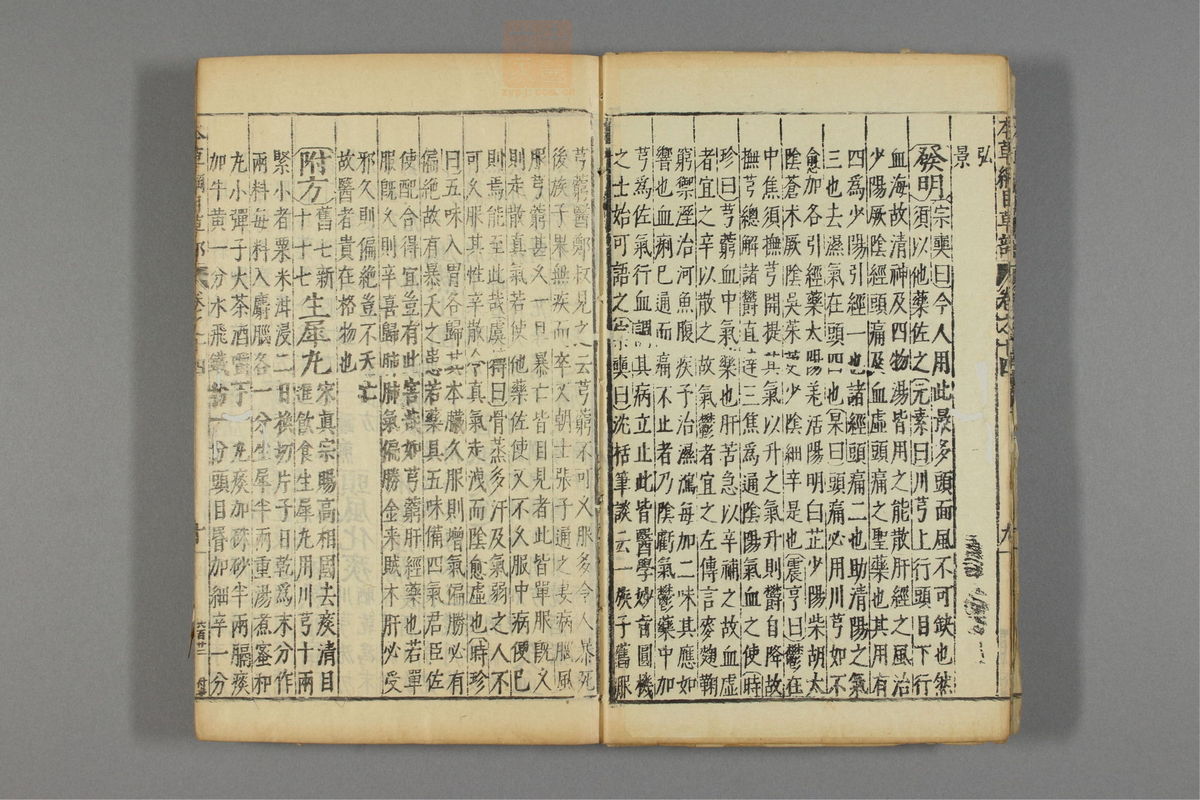 弘景
發明宗奭曰今人用此最多頭面風不可缺也然
須以他藥佐之元素曰川芎上行頭目下行
血海故清神及四物湯皆用之能散肝經之風治
少陽厥陰經頭痛及血虛頭痛之聖藥也其用有
四爲少陽引經一也諸經頭痛二也助清陽之氣
三也去濕氣在頭四也杲曰頭痛必用川芎如不
愈加各引經藥太陽羌活陽明白芷少陽柴胡太
陰蒼术厥陰吳茱萸少陰細辛是也震亨曰鬱在
中焦須撫芎開提其氣以升之氣升則鬱自降故
撫芎總解諸鬱直達三焦爲通陰陽氣血之使時
珍曰芎藭血中氣藥也肝苦急以辛補之故血虛
者宜之辛以散之故氣鬱者宜之左傳言麥麴鞠
窮禦溼治河魚腹疾予治濕瀉每加二味其應如
響也血痢已通而痛不止者乃陰虧氣鬱藥中加
芎爲佐氣行血調其病立止此皆醫學妙旨圓機
之士始可語之宗奭曰沈括筆談云一族子舊服
芎藭醫鄭叔見之云芎藭不可久服多令人暴死
後族子果無疾而卒又朝士張子通之妻病腦風
服芎藭甚久一旦暴亡皆目見者此皆單服旣久
則走散眞氣若使他藥佐使又不久服中病便已
則焉能至此哉虞摶曰骨蒸多汗及氣弱之人不
可久服其性辛散令眞氣走洩而陰愈虛也時珍
曰五味入胃各歸其本臟久服則增氣偏勝必有
偏絶故有暴夭之患若藥具五味備四氣君臣佐
使配合得宜豈有此害哉如芎藭肝經藥也若單
服旣久則辛喜歸肺肺氣偏勝金來賊木肝必受
邪久則偏絶豈不夭亡
故醫者貴在格物也
附方舊七新十七生犀丸宋眞宗賜高相國去痰清目
進飲食生犀丸用川芎十兩
緊小者粟米泔浸二日換切片子日乾爲末分作
兩料每料入麝腦各一分生犀半兩重湯煮蜜和
丸小彈子大茶酒嚼下一丸痰加硃砂半兩膈痰
加牛黃一分水飛鐵粉一分頭目昏加細辛一分